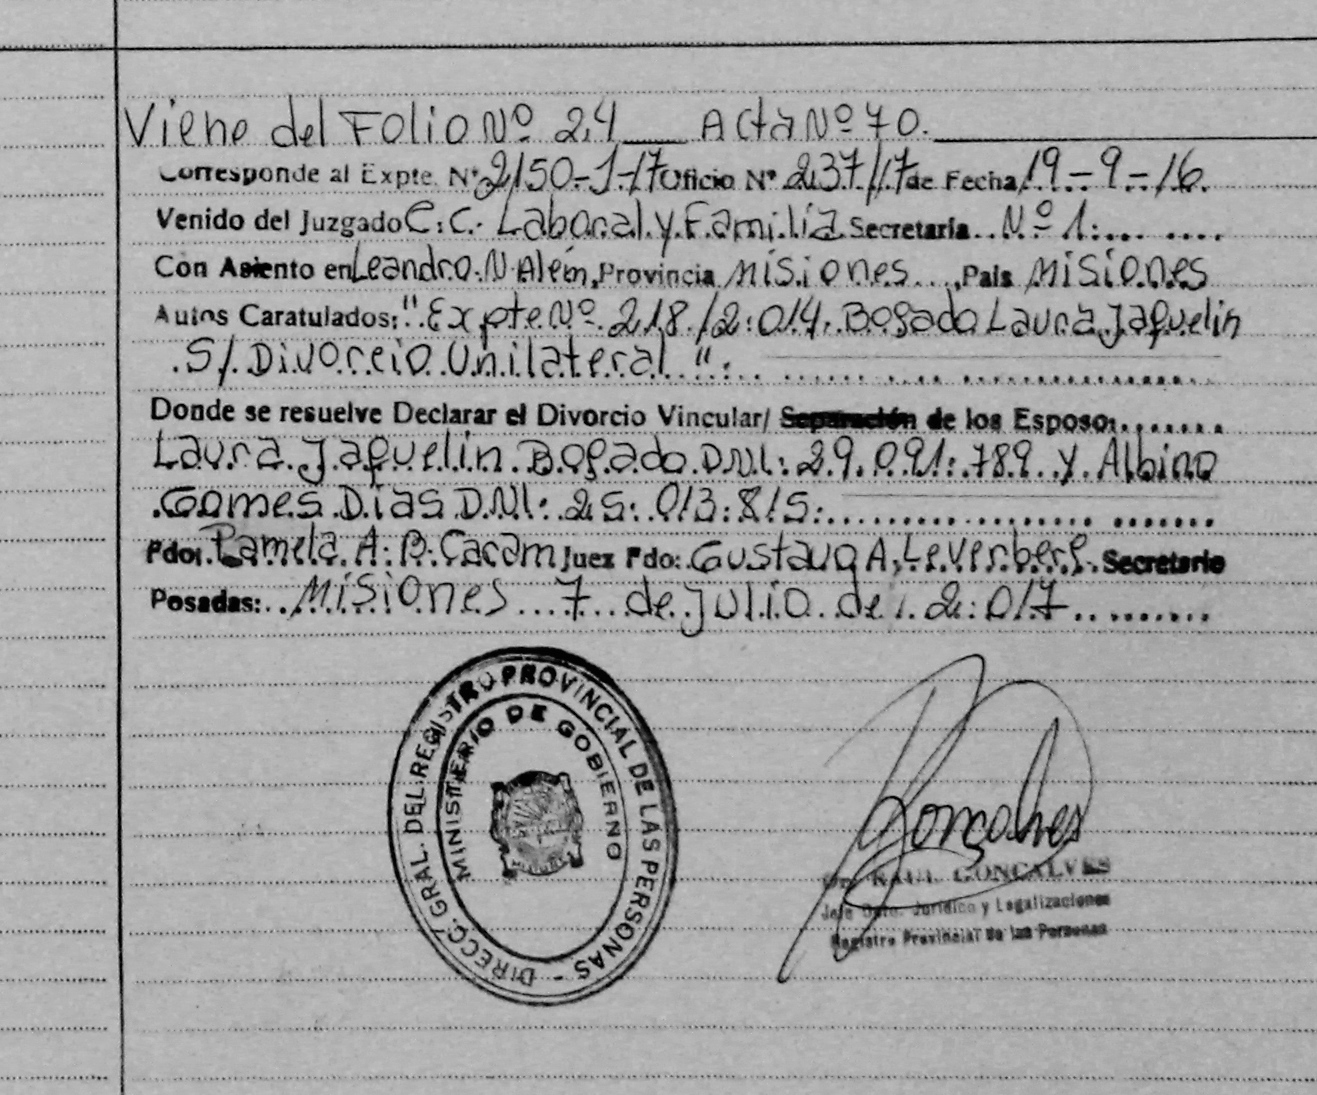 Viene del Folio Nº 24 Acta Nº 70.
Corresponde al Expte. Nº 2150-J-17 Oficio Nº 237/17 de Fecha 19-9-16.
Venido del Juzgado C.C. Laboral y Familia Secretaría Nº 1:
Con Asiento en Leandro N Alem, Provincia Misiones, País Misiones
Autos Caratulados: "Expte Nº 218/2.014. Bogado Laura Jaquelin
S/. Divorcio Unilateral".
Donde se resuelve Declarar el Divorcio Vincular/ Separación de los Esposo:
Laura Jaquelin Bogado DNI: 29.091.789 y Albino
Gomes Dias DNI: 25.013.815.
Fdo: Pamela A. B. Juez Fdo: Gustavo A. Secretario
Posadas: Misiones 7 de julio de 2.017
DIRECC. GRAL. DEL REGISTRO PROVINCIAL DE LAS PERSONAS -
MINISTERIO DE GOBIERNO
Goncalves
Dr. RAUL GONCALVES
Jefe Dpto. Jurídico y Legalizaciones
Registro Provincial de las Personas